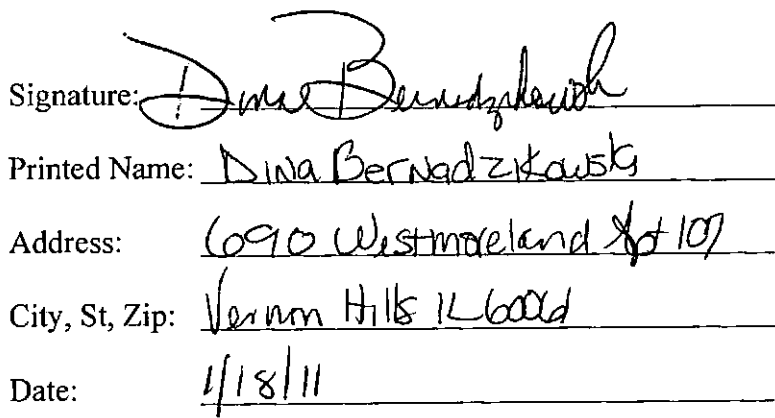 Signature: Dina Bernadzikowski
Printed Name: Dina Bernadzikowski
Address: 690 Westmoreland Apt 107
City, St, Zip: Vernon Hills IL 60061
Date: 1/18/11